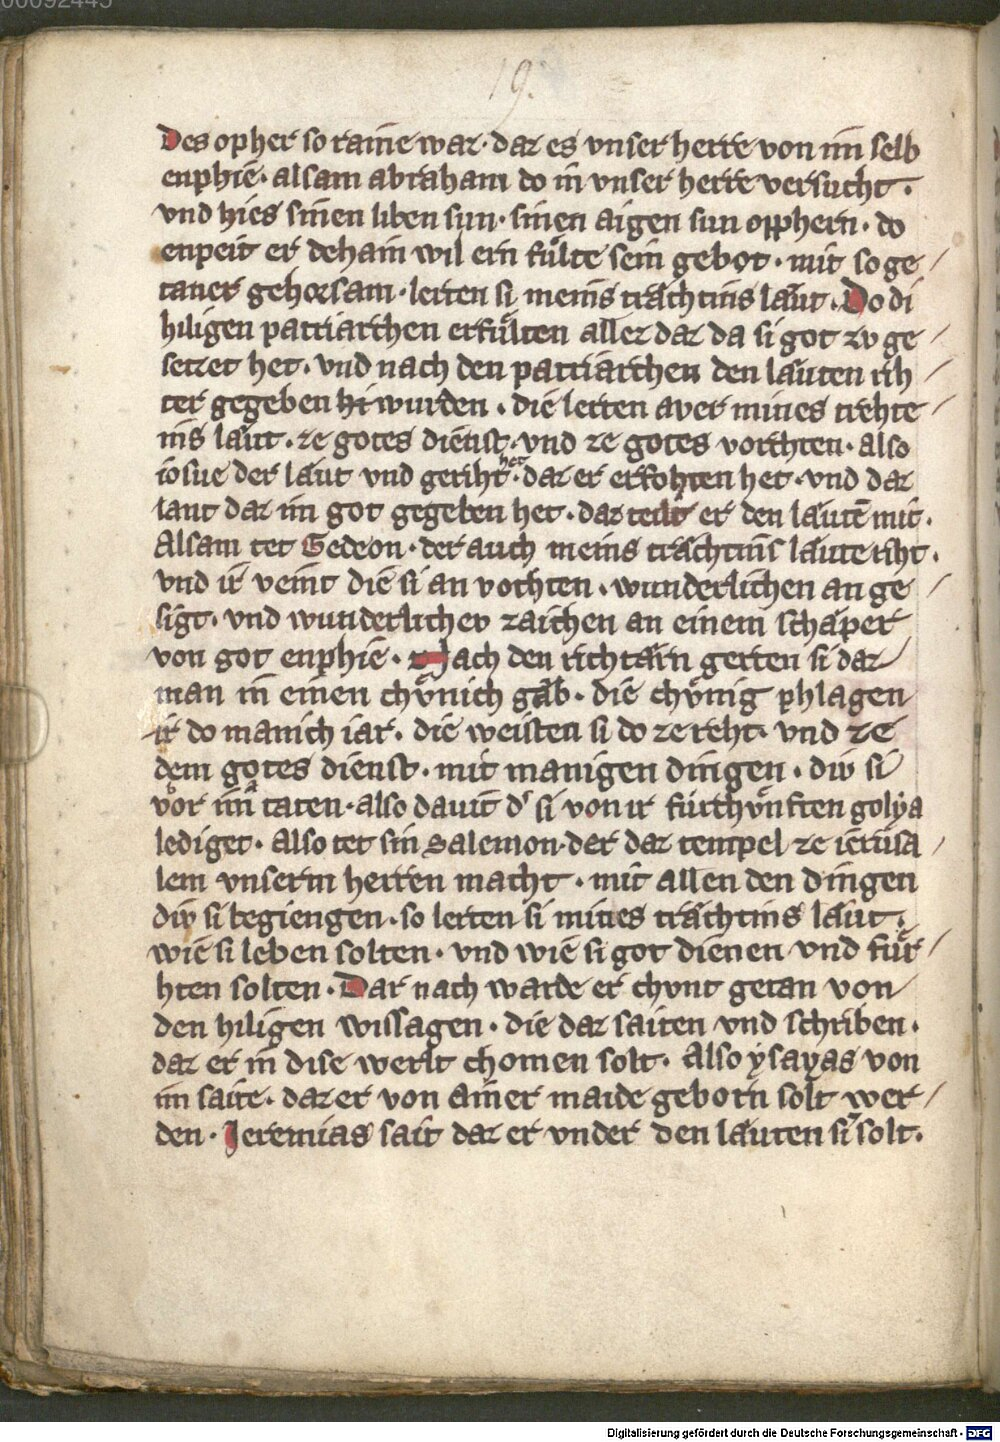 00092445
19.
Des opher so raine war · daz es vnser herre von im selb
enphie · alsam abraham do in vnser herre versucht ·
vnd hies sinen liben sun · sinen aigen sun opphern · do
enpeit er dehain wil ern fůlte sein gebot · mit so ge /
taner gehorsam · lerten si meins trähtins läut · Do di
hiligen patriarchen erfůlten allez daz da si got zv ge /
sezzet het · vnd nach den patriarchen den läuten rih /
ter gegeben hi wurden · die lerten aver mines trehte /
ins läut · ze gotes dienst · vnd ze gotes vorhten · also
iosue der läut vnd geriht her · daz er erfohten het · vnd daz
lant daz im got gegeben het · daz teilt er den läutē mit ·
Alsam tet Gedeon · der auch meins trächtins läute riht ·
vnd ir veint die si an vohten · wunderlichen an ge /
sigt · vnd wunderlichev zaichen an einem schäper
von got enphie · Nach den richtärn gerten si daz
man in einen chůnich gäb · die chůnig phlagen
ir do manich iar · die weisten si do ze reht · vnd ze
dem gotes dienst · mit manigen dingen · div si
vor im taten · also dauit dͬ si von ir fürchůnften golẏa
lediget · Also tet sin Salemon · der daz tempel ze ierusa /
lem vnserm herren macht · mit allen den dingen
div si begiengen · so lerten si mines trächtins läut ·
wie si leben solten · vnd wie si got dienen vnd für /
hten solten · Dar nach warde er chunt getan von
den hiligen wissagen · die daz saiten vnd schriben ·
daz er in dise werlt chomen solt · Also ẏsaẏas von
im saite · daz er von ainer maide geborn solt wer /
den · Jeremias sait daz er vnder den läuten sin solt ·
Digitalisierung gefördert durch die Deutsche Forschungsgemeinschaft - DFG